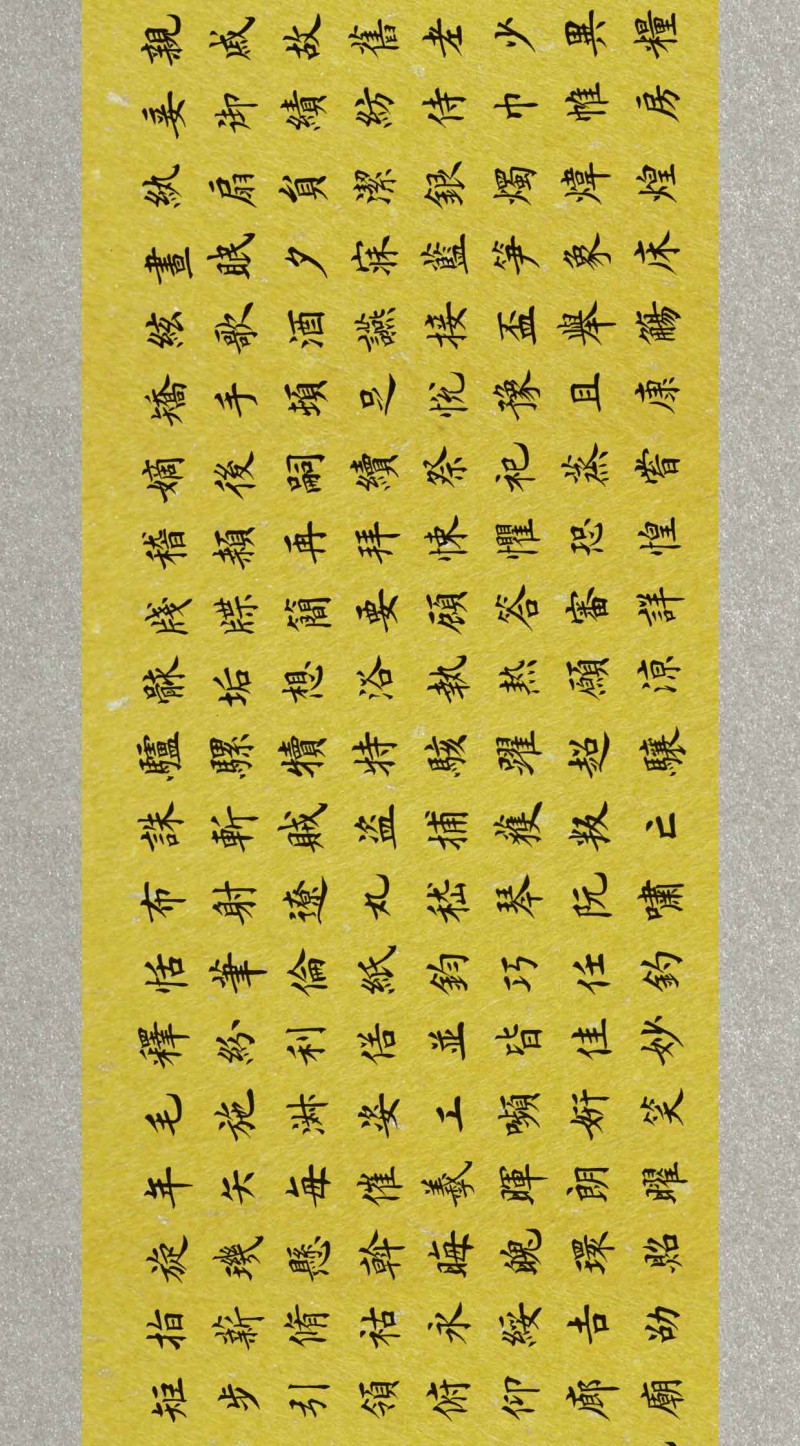 親戚故舊老少異糧
妾御績紡侍巾帷房
紈扇員潔銀燭煒煌
晝眠夕寐藍笋象床
絃歌酒讌接盃舉觴
矯手頓足悅豫且康
嫡後嗣續祭祀蒸嘗
稽顙再拜悚懼恐惶
牋牒簡要顧答審詳
骸垢想浴執熱願涼
驢騾犢特駭躍超驤
誅斬賊盜捕獲叛亡
布射遼丸嵇琴阮嘯
恬筆倫紙鈞巧任釣
釋紛利俗並皆佳妙
毛施淑姿工嚬妍笑
年矢每催羲暉朗曜
旋璣懸斡晦魄環照
指薪脩祜永綏吉劭
矩步引領俯仰廊廟